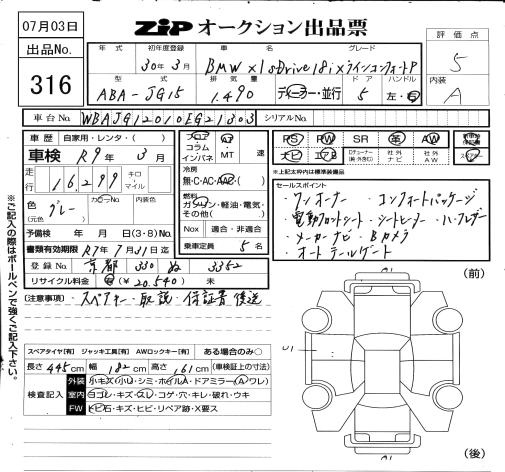 07月03日
ZIP オークション出品票
評価点
出品No.
年式 初年度登録 車名 グレード
30年3月 BMW X1 sDrive18i xラインコンフォートP
5
316
型式 排気量 ドア ハンドル
ABA-JG15 1.490 ディーラー・並行 5 左・右
内装
A
車台No. WBAJG12010EG21303 シリアルNo.
車歴 自家用・レンタ・( )
車検 R9年 3月
走行 16,299 キロ マイル
フロア AT
コラム
インパネ ・MT 速
PS PW SR 革 AW
ナビ エアB 社外ナビ 社外AW
冷房
無・C・AC・AAC・( )
※上記太枠内は標準装備品
色 (元色) グレー カラーNo. 内装色
燃料
ガソリン・軽油・電気・
その他( )
セールスポイント
・ワンオーナー ・コンフォートパッケージ
・電動フロントシート ・シートヒーター ・ハーフレザー
・メーカーナビ ・Bカメラ
・オートテールゲート
予備検 年 月 日(3・8)No.
Nox 適合・非適合
書類有効期限 R7年7月31日迄
乗車定員 5名
登録No. 京都 330 ぬ 3352
リサイクル料金 (¥20.540) 未
(前)
(注意事項) ・スペアキー・取説・保証書後送
※ご記入の際はボールペンで強くご記入下さい。
スペアタイヤ[有] ジャッキ工具[有] AWロックキー[有] ある場合のみ○
長さ 445cm 幅 182cm 高さ 161cm (車検証上の寸法)
検査記入
外装 小キズ・小凹・シミ・ホイルA・ドアミラー(A ワレ)
室内 ヨゴレ・キズ・スレ・コゲ・穴・キレ・破れ・ウキ
FW トビ石・キズ・ヒビ・リペア跡・X要ス
U1
(後)